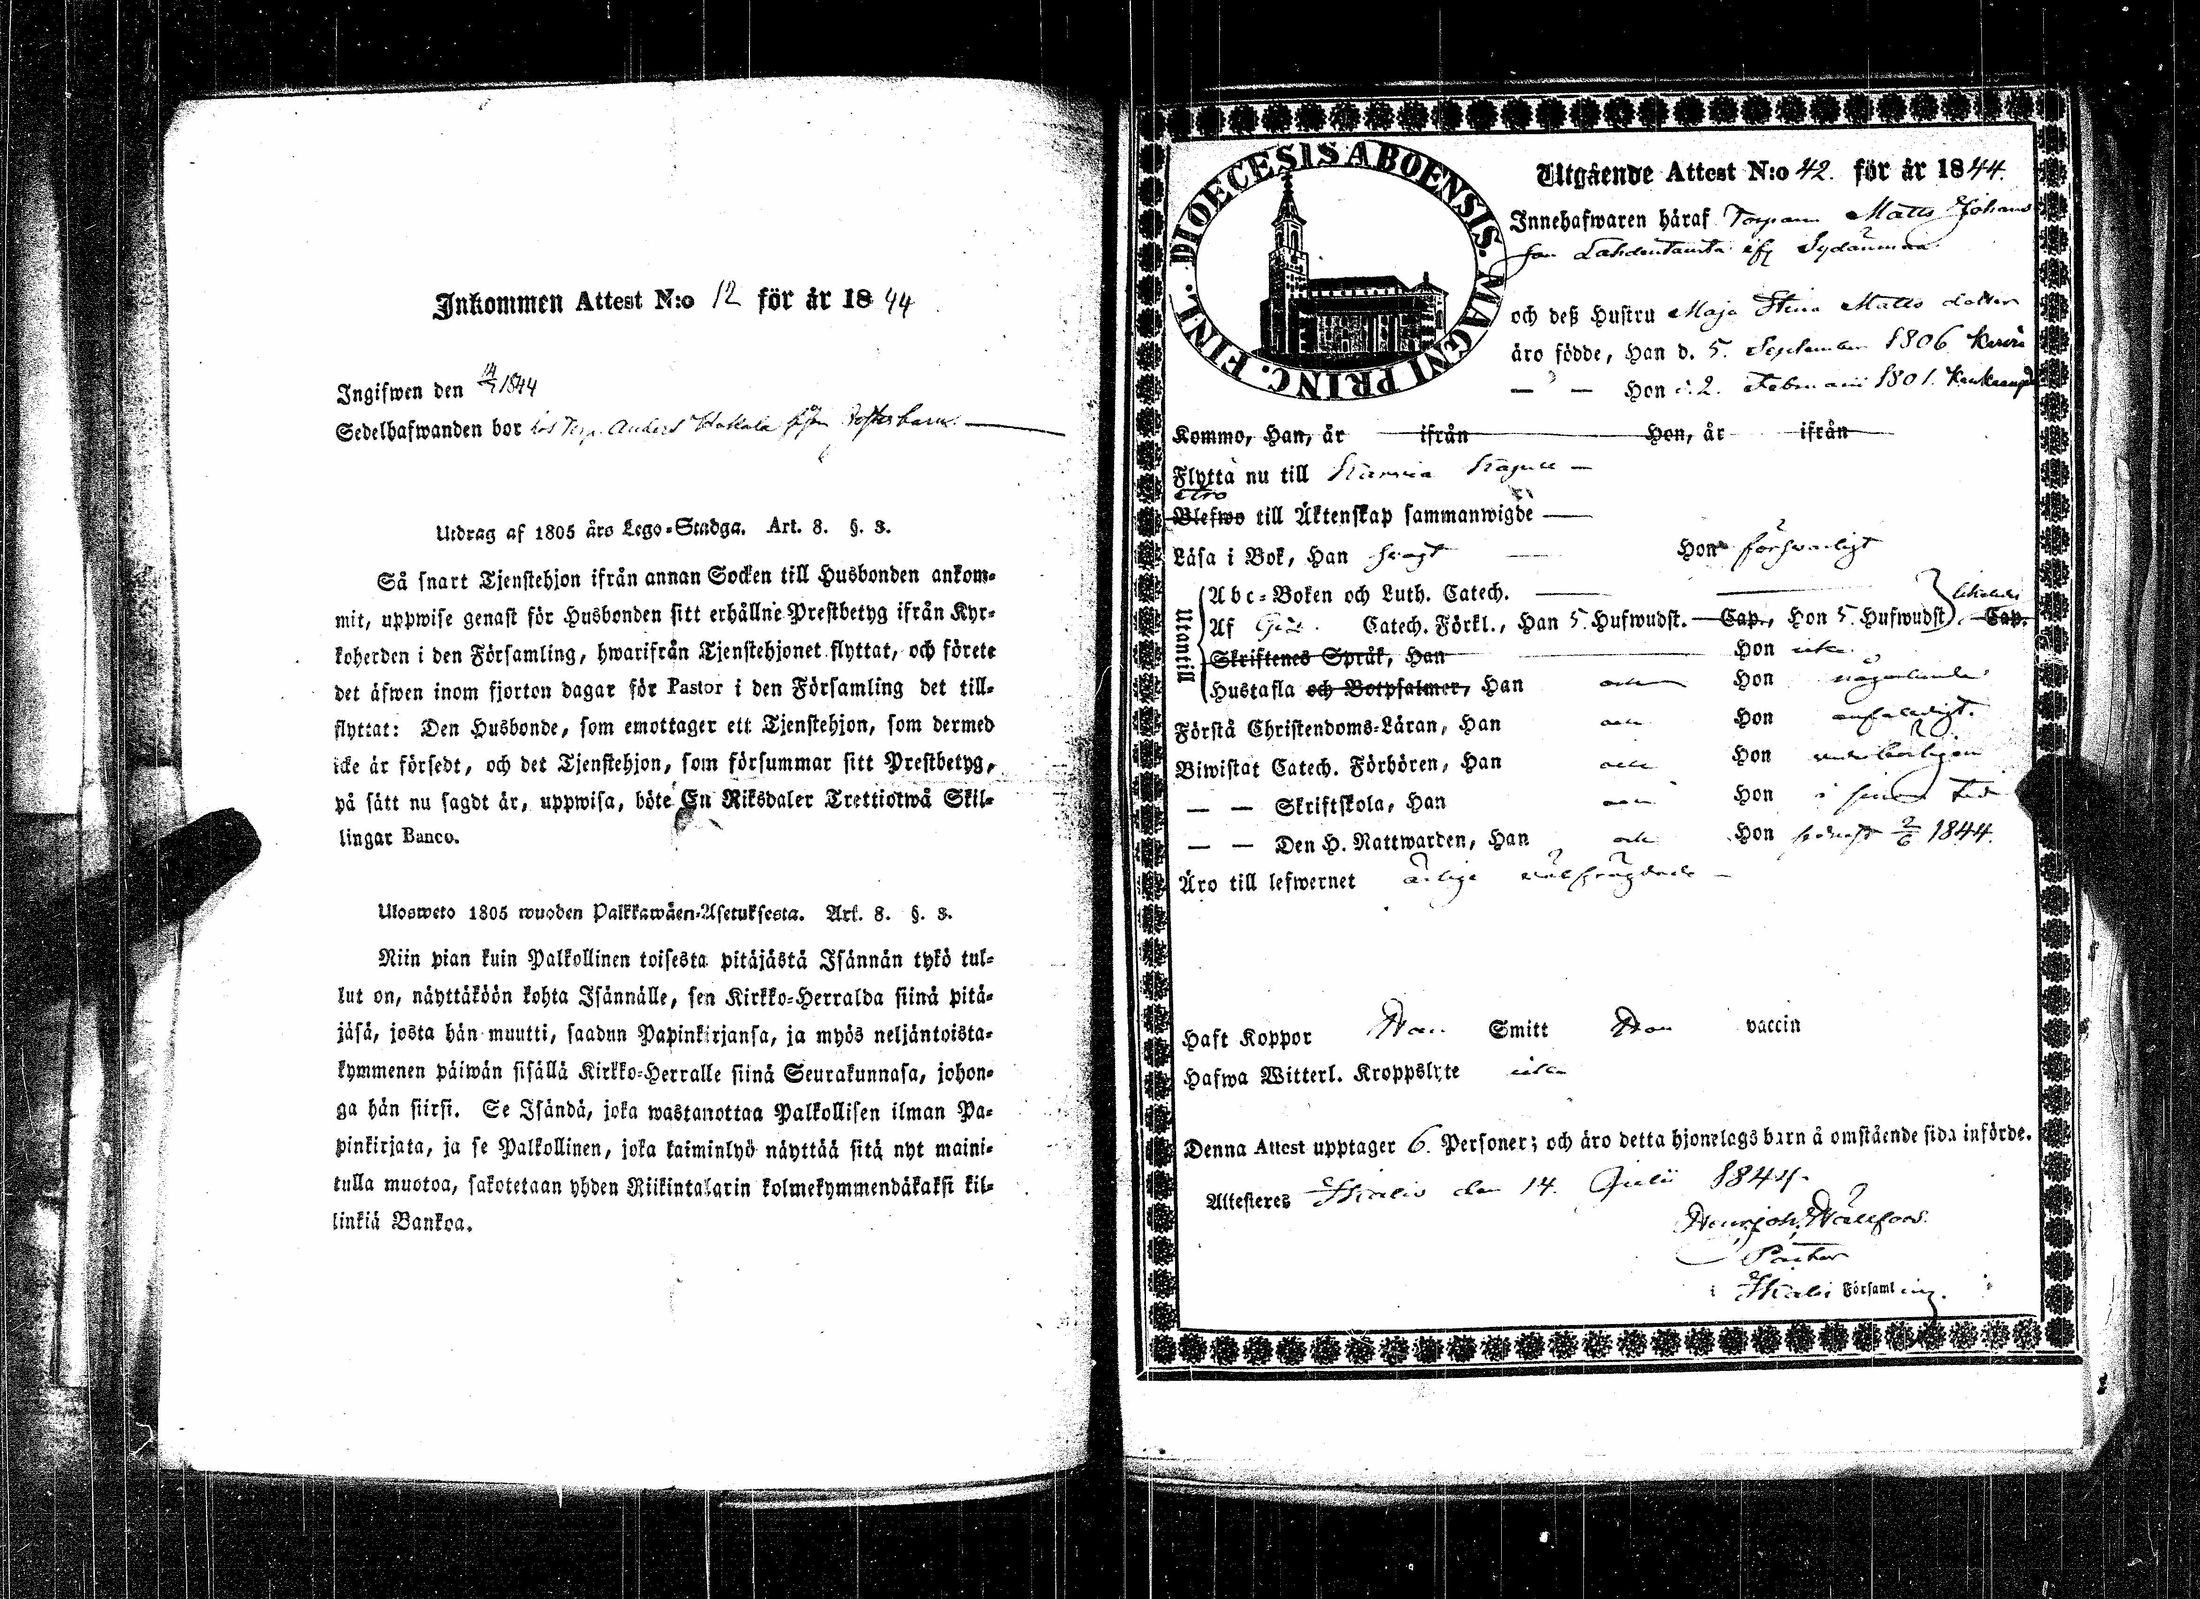 Inkommen Attest N:o 12 för år 1844
Ingifwen den 14/7 1844
Sedelhafwanden bor hos Torp. Anders
Utdrag af 1805 års Lego-Stadga. Art. 8. §. 3.
Så snart Tjenstehjon ifrån annan Socken till Husbonden ankom-
mit, uppwise genast för Husbonden sitt erhållne Prestbetyg ifrån Kyr-
koherden i den Församling, hwarifrån Tjenstehjonet flyttat, och förete
det äfwen inom fjorton dagar för Pastor i den Församling det till-
flyttat: Den Husbonde, som emottager ett Tjenstehjon, som dermed
icke är försedt, och det Tjenstehjon, som försummar sitt Prestbetyg,
på sätt nu sagdt är, uppwisa, böte En Riksdaler Trettiotwå Skil-
lingar Banco.
Ulosweto 1805 wuoden Palkkawäen-Asetuksesta. Art. 8. §. 3.
Niin pian kuin Palkollinen toisesta pitäjästä Isännän tykö tul-
lut on, näyttäköön kohta Isännälle, sen Kirkko-Herralda siinä pitä-
jäsä, josta hän muutti, saadun Papinkirjansa, ja myös neljäntoista-
kymmenen päiwän sisällä Kirkko-Herralle siinä Seurakunnasa, johon-
ga hän siirsi. Se Isändä, joka wastanottaa Palkollisen ilman Pa-
pinkirjata, ja se Palkollinen, joka laiminlyö näyttää sitä nyt maini-
tulla muotoa, sakotetaan yhden Riikintalarin kolmekymmendäkaksi kil-
linkiä Bankoa.
DIOECESIS ABOENSIS. MAGNI PRINC. FINL.
Utgående Attest N:o 42. för år 1844.
Innehafwaren häraf Torparen Matts Johans
son Lahdentausta af Sydänmaa
och deß Hustru Maja Stina Matts dotter
äro födde, Han d. 5. September 1806
— — Hon d. 2. Februarii 1801. Kankaanpää
Kommo, Han, år ifrån Hon, år ifrån
Flytta nu till
äro
Blefwo till Äktenskap sammanwigde —
Läsa i Bok, Han svagt — Hon försvarligt
Utantill
Abc-Boken och Luth. Catech. —
Af Catech. Förkl., Han 5 Hufwudst. Cap., Hon 5 Hufwudst. Cap.
Skriftenes Språk, Han Hon icke
Hustafla och Botpsalmer, Han och Hon någorlunda
Förstå Christendoms-Läran, Han och Hon enfaldigt.
Biwistat Catech. Förhören, Han och Hon vederbörligen
— — Skriftskola, Han och Hon i sinom tid
— — Den H. Nattwarden, Han och Hon senast 2/6 1844.
Äro till lefwernet ärlige välfrägdade —
Haft Koppor Han Smitt Hon vaccin
Hafwa Witterl. Kroppslyte icke
Denna Attest upptager 6. Personer; och äro detta hjonelags barn å omstående sida införde.
Attesteres Ikalis den 14. Julii 1844.
Pastor
i Ikalis Församling.